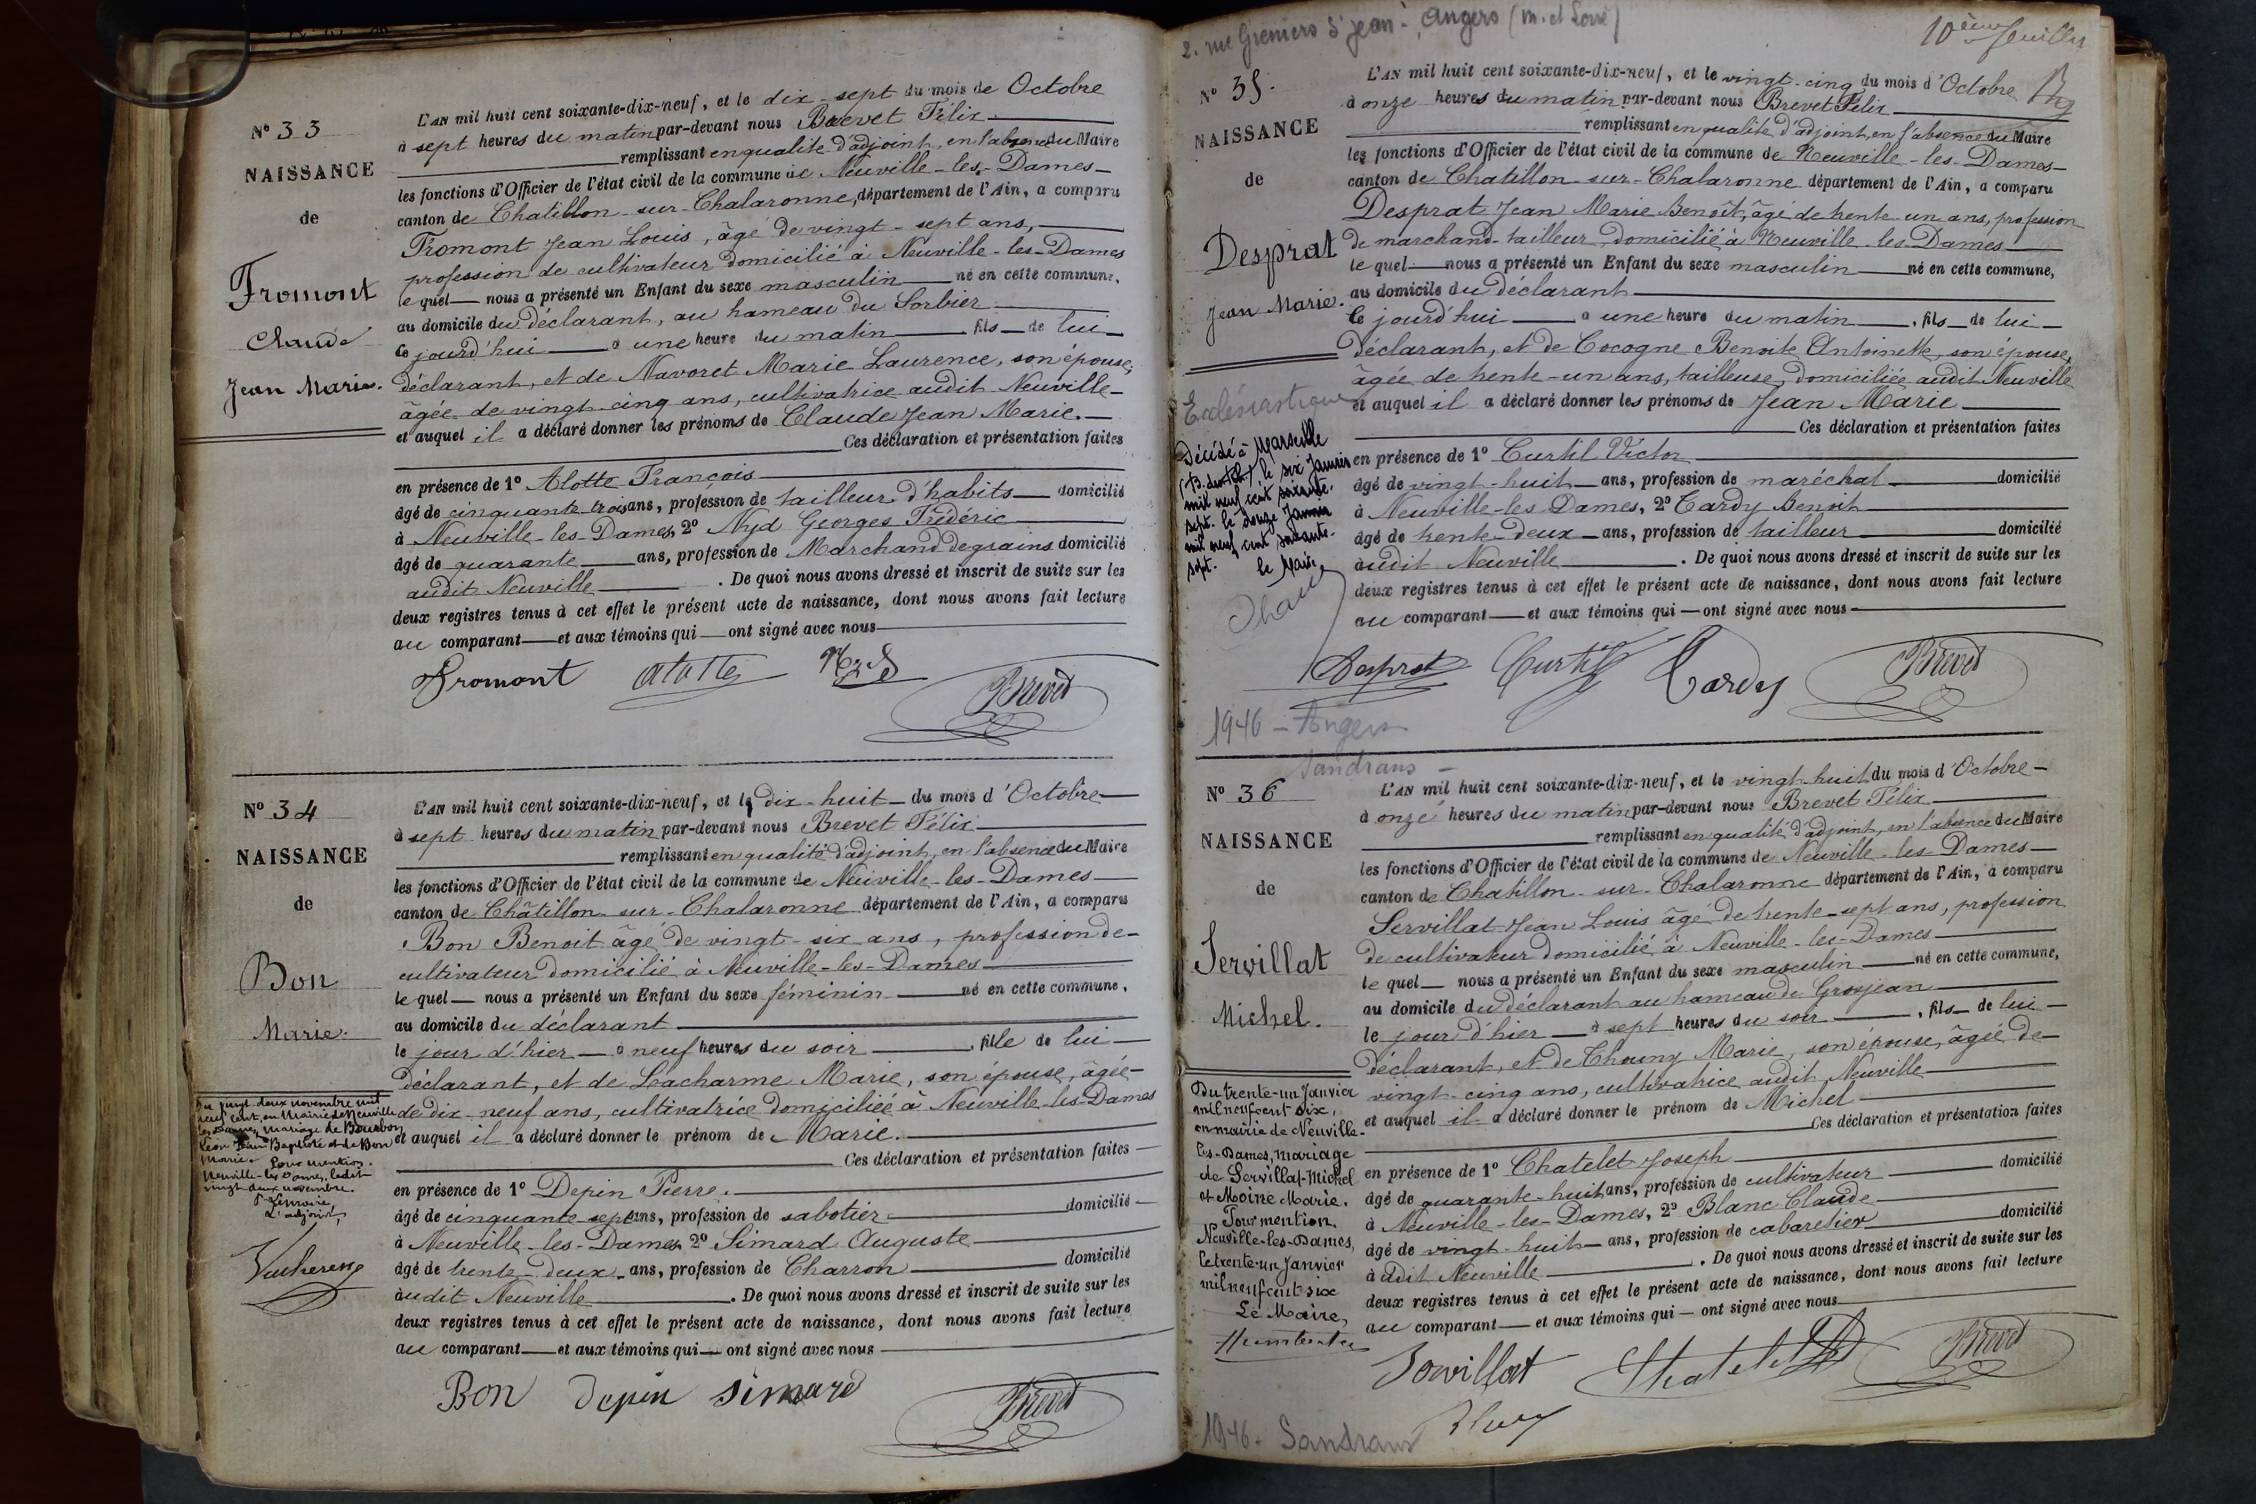 N° 33
NAISSANCE
de
Fromont
Claude
Jean Marie.
L'AN mil huit cent soixante-dix-neuf, et le dix-sept du mois de Octobre
à sept heures du matin par-devant nous Brevet Félix
remplissant en qualité d'adjoint, en l'absence du Maire
les fonctions d'Officier de l'état civil de la commune de Neuville-les-Dames
canton de Chatillon-sur-Chalaronne, département de l'Ain, a comparu
Fromont Jean Louis, âgé de vingt-sept ans,
profession de cultivateur domicilié à Neuville-les-Dames
lequel nous a présenté un Enfant du sexe masculin né en cette commune,
au domicile du déclarant, au hameau du Sorbier
ce jourd'hui à une heure du matin, fils de lui
déclarant, et de Navoret Marie Laurence, son épouse,
âgée de vingt-cinq ans, cultivatrice audit Neuville
et auquel il a déclaré donner les prénoms de Claude Jean Marie.
Ces déclaration et présentation faites
en présence de 1° Alotte François
âgé de cinquante-trois ans, profession de tailleur d'habits domicilié
à Neuville-les-Dames, 2° Nyd Georges Frédéric
âgé de quarante ans, profession de Marchand de grains domicilié
audit Neuville. De quoi nous avons dressé et inscrit de suite sur les
deux registres tenus à cet effet le présent acte de naissance, dont nous avons fait lecture
au comparant et aux témoins qui ont signé avec nous
Fromont alotte Nyd Brevet
N° 34
NAISSANCE
de
Bon
Marie.
Du vingt deux novembre mil
neuf cent, en Mairie de Neuville
les Dames, mariage de Bourbon
Léon Jean Baptiste et de Bon
Marie. Pour mention.
Neuville-les-Dames, ledit
vingt-deux novembre.
L'adjoint,
L'AN mil huit cent soixante-dix-neuf, et le dix-huit du mois d'Octobre
à sept heures du matin par-devant nous Brevet Félix
remplissant en qualité d'adjoint, en l'absence du Maire
les fonctions d'Officier de l'état civil de la commune de Neuville-les-Dames
canton de Châtillon-sur-Chalaronne département de l'Ain, a comparu
Bon Benoit âgé de vingt-six ans, profession de
cultivateur domicilié à Neuville-les-Dames
lequel nous a présenté un Enfant du sexe féminin né en cette commune,
au domicile du déclarant
le jour d'hier à neuf heures du soir, fille de lui
déclarant, et de Lacharme Marie, son épouse, âgée
de dix-neuf ans, cultivatrice domiciliée à Neuville-les-Dames
et auquel il a déclaré donner le prénom de Marie.
Ces déclaration et présentation faites
en présence de 1° Depin Pierre.
âgé de cinquante-sept ans, profession de sabotier domicilié
à Neuville-les-Dames 2° Simard Auguste
âgé de trente-deux ans, profession de Charron domicilié
audit Neuville. De quoi nous avons dressé et inscrit de suite sur les
deux registres tenus à cet effet le présent acte de naissance, dont nous avons fait lecture
au comparant et aux témoins qui ont signé avec nous
Bon depin simard Brevet
2. rue Greniers St Jean - Angers (M. et Loire)
10ème feuillet
N° 35.
NAISSANCE
de
Desprat
Jean Marie.
Ecclésiastique
Décédé à Marseille
(B.-du-Rh.) le six Janvier
mil neuf cent soixante-
sept. le douze Janvier
mil neuf cent soixante-
sept. Le Maire
L'AN mil huit cent soixante-dix-neuf, et le vingt-cinq du mois d'Octobre
à onze heures du matin par-devant nous Brevet Félix
remplissant en qualité d'adjoint, en l'absence du Maire
les fonctions d'Officier de l'état civil de la commune de Neuville-les-Dames
canton de Chatillon-sur-Chalaronne département de l'Ain, a comparu
Desprat Jean Marie Benoît, âgé de trente-un ans, profession
de marchand-tailleur, domicilié à Neuville-les-Dames
lequel nous a présenté un Enfant du sexe masculin né en cette commune,
au domicile du déclarant
ce jourd'hui à une heure du matin, fils de lui
déclarant, et de Cocogne Benoite Antoinette, son épouse,
âgée de trente-un ans, tailleuse, domiciliée audit Neuville
et auquel il a déclaré donner les prénoms de Jean Marie
Ces déclaration et présentation faites
en présence de 1° Curtil Victor
âgé de vingt-huit ans, profession de maréchal domicilié
à Neuville-les-Dames, 2° Tardy Benoit
âgé de trente-deux ans, profession de tailleur domicilié
audit Neuville. De quoi nous avons dressé et inscrit de suite sur les
deux registres tenus à cet effet le présent acte de naissance, dont nous avons fait lecture
au comparant et aux témoins qui ont signé avec nous
Desprat Curtil Tardy Brevet
1946 - Angers
Sandrans -
N° 36
NAISSANCE
de
Servillat
Michel.
Du trente-un Janvier
mil neuf cent six,
en mairie de Neuville-
les-Dames, mariage
de Servillat Michel
et Moine Marie.
Pour mention.
Neuville-les-Dames,
le trente-un Janvier
mil neuf cent six
Le Maire,
L'AN mil huit cent soixante-dix-neuf, et le vingt-huit du mois d'Octobre
à onze heures du matin par-devant nous Brevet Félix
remplissant en qualité d'adjoint, en l'absence du Maire
les fonctions d'Officier de l'état civil de la commune de Neuville-les-Dames
canton de Chatillon-sur-Chalaronne département de l'Ain, a comparu
Servillat Jean Louis âgé de trente-sept ans, profession
de cultivateur domicilié à Neuville-les-Dames
lequel nous a présenté un Enfant du sexe masculin né en cette commune,
au domicile du déclarant au hameau de Grosjean
le jour d'hier à sept heures du soir, fils de lui
déclarant, et de Chouny Marie, son épouse, âgée de
vingt-cinq ans, cultivatrice audit Neuville
et auquel il a déclaré donner le prénom de Michel
Ces déclaration et présentation faites
en présence de 1° Chatelet Joseph
âgé de quarante-huit ans, profession de cultivateur domicilié
à Neuville-les-Dames, 2° Blanc Claude
âgé de vingt-huit ans, profession de cabaretier domicilié
audit Neuville. De quoi nous avons dressé et inscrit de suite sur les
deux registres tenus à cet effet le présent acte de naissance, dont nous avons fait lecture
au comparant et aux témoins qui ont signé avec nous
Servillat Chatelet Brevet
1946 - Sandrans